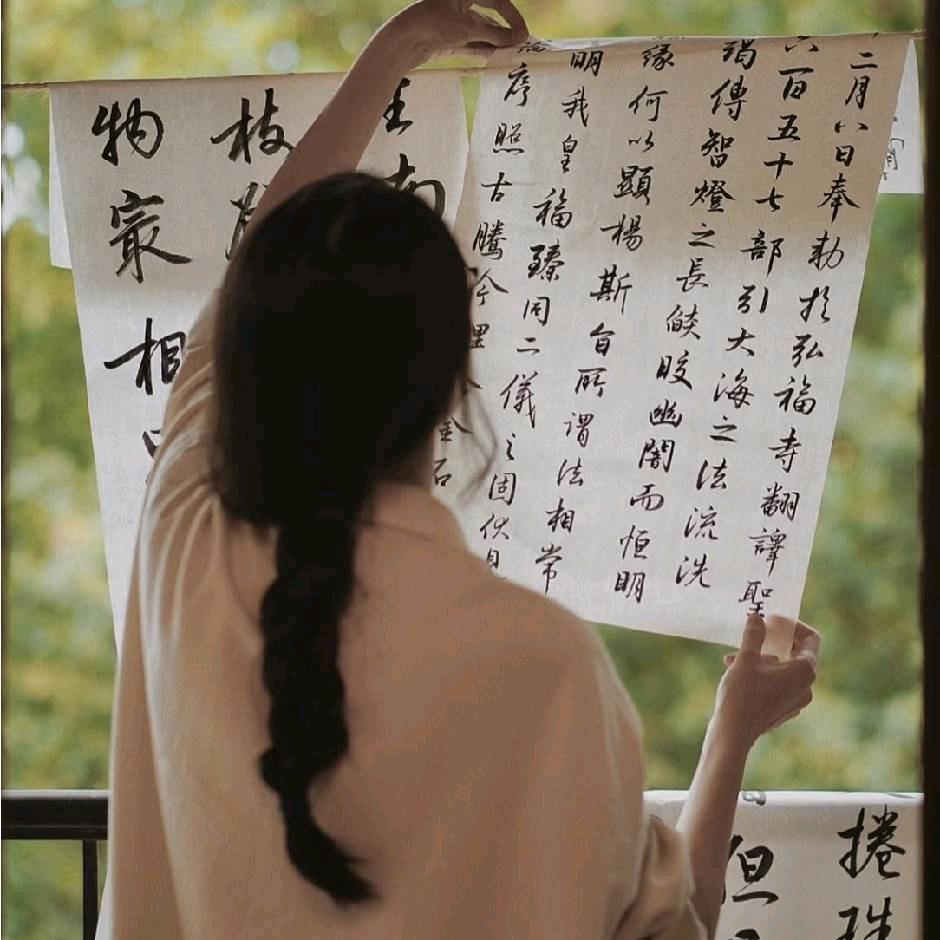 二月八日奉勅於弘福寺翻譯聖
六百五十七部引大海之法流洗
竭傳智燈之長焰皎幽闇而恒明
緣何以顯揚斯旨所謂法相常
明我皇福臻同二儀之固伏見
序照古騰今理含金石
生南
枝
物最相
捲珠
但